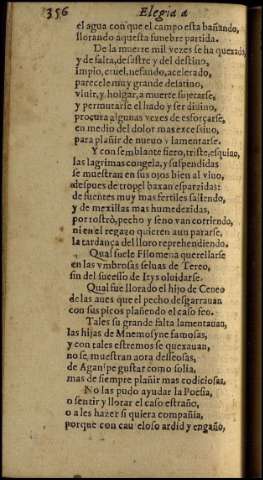 356 Elegia a
el agua con que el campo esta bañando,
llorando aquesta funebre partida.
De la muerte mil vezes se ha quexado,
y de falta, desastre y del destino,
impio, cruel, nefando, acelerado,
parecele muy grande desatino,
viuir, y holgar, a muerte sujetarse,
y permutarse el hado y ser diuino,
procura algunas vezes de esforçarse,
en medio del dolor mas excessiuo,
para plañir de nueuo y lamentarse.
Y con semblante fiero, triste, esquiuo,
las lagrimas congela, y suspendidas
se muestran en sus ojos bien al viuo,
despues de tropel baxan esparzidas:
de fuentes muy mas fertiles saliendo,
y de mexillas mas humedezidas,
por rostro, pecho y seno van corriendo,
ni en el regazo quieren aun pararse,
la tardança del lloro reprehendiendo.
Qual suele Filomena querellarse
en las vmbrosas seluas de Tereo,
sin del sucesso de Itys oluidarse.
Qual fue llorado el hijo de Ceneo
de las aues que el pecho desgarrauan
con sus picos plañendo el caso feo.
Tales su grande falta lamentauan,
las hijas de Mnemosyne famosas,
y con tales estremos se quexauan,
no se muestran aora desseosas,
de Aganipe gustar como solia,
mas de siempre plañir mas codiciosas.
No las pudo ayudar la Poesia,
o sentir y llorar el caso estraño,
o a les hazer si quiera compañia,
porque con cau eloso ardid y engaño,